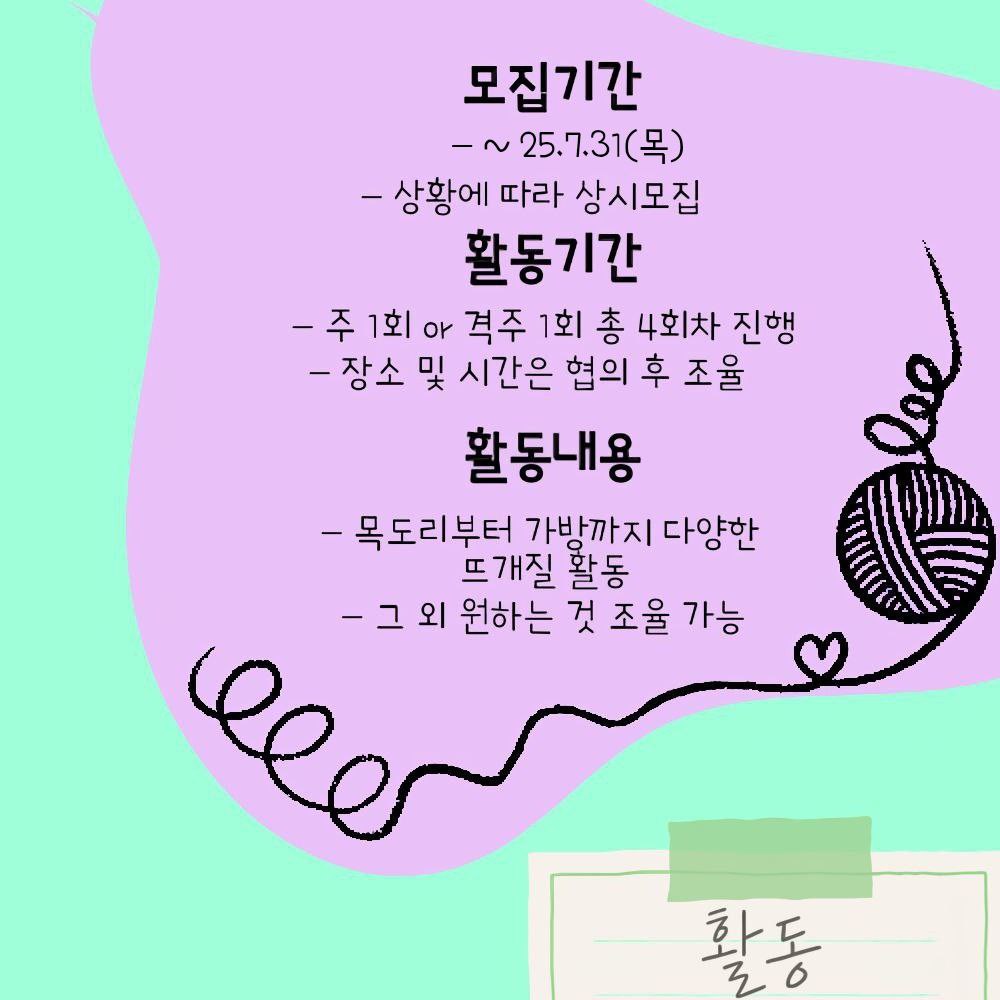 모집기간
- ~ 25.7.31(목)
- 상황에 따라 상시모집
활동기간
- 주 1회 or 격주 1회 총 4회차 진행
- 장소 및 시간은 협의 후 조율
활동내용
- 목도리부터 가방까지 다양한
뜨개질 활동
- 그 외 원하는 것 조율 가능
활동